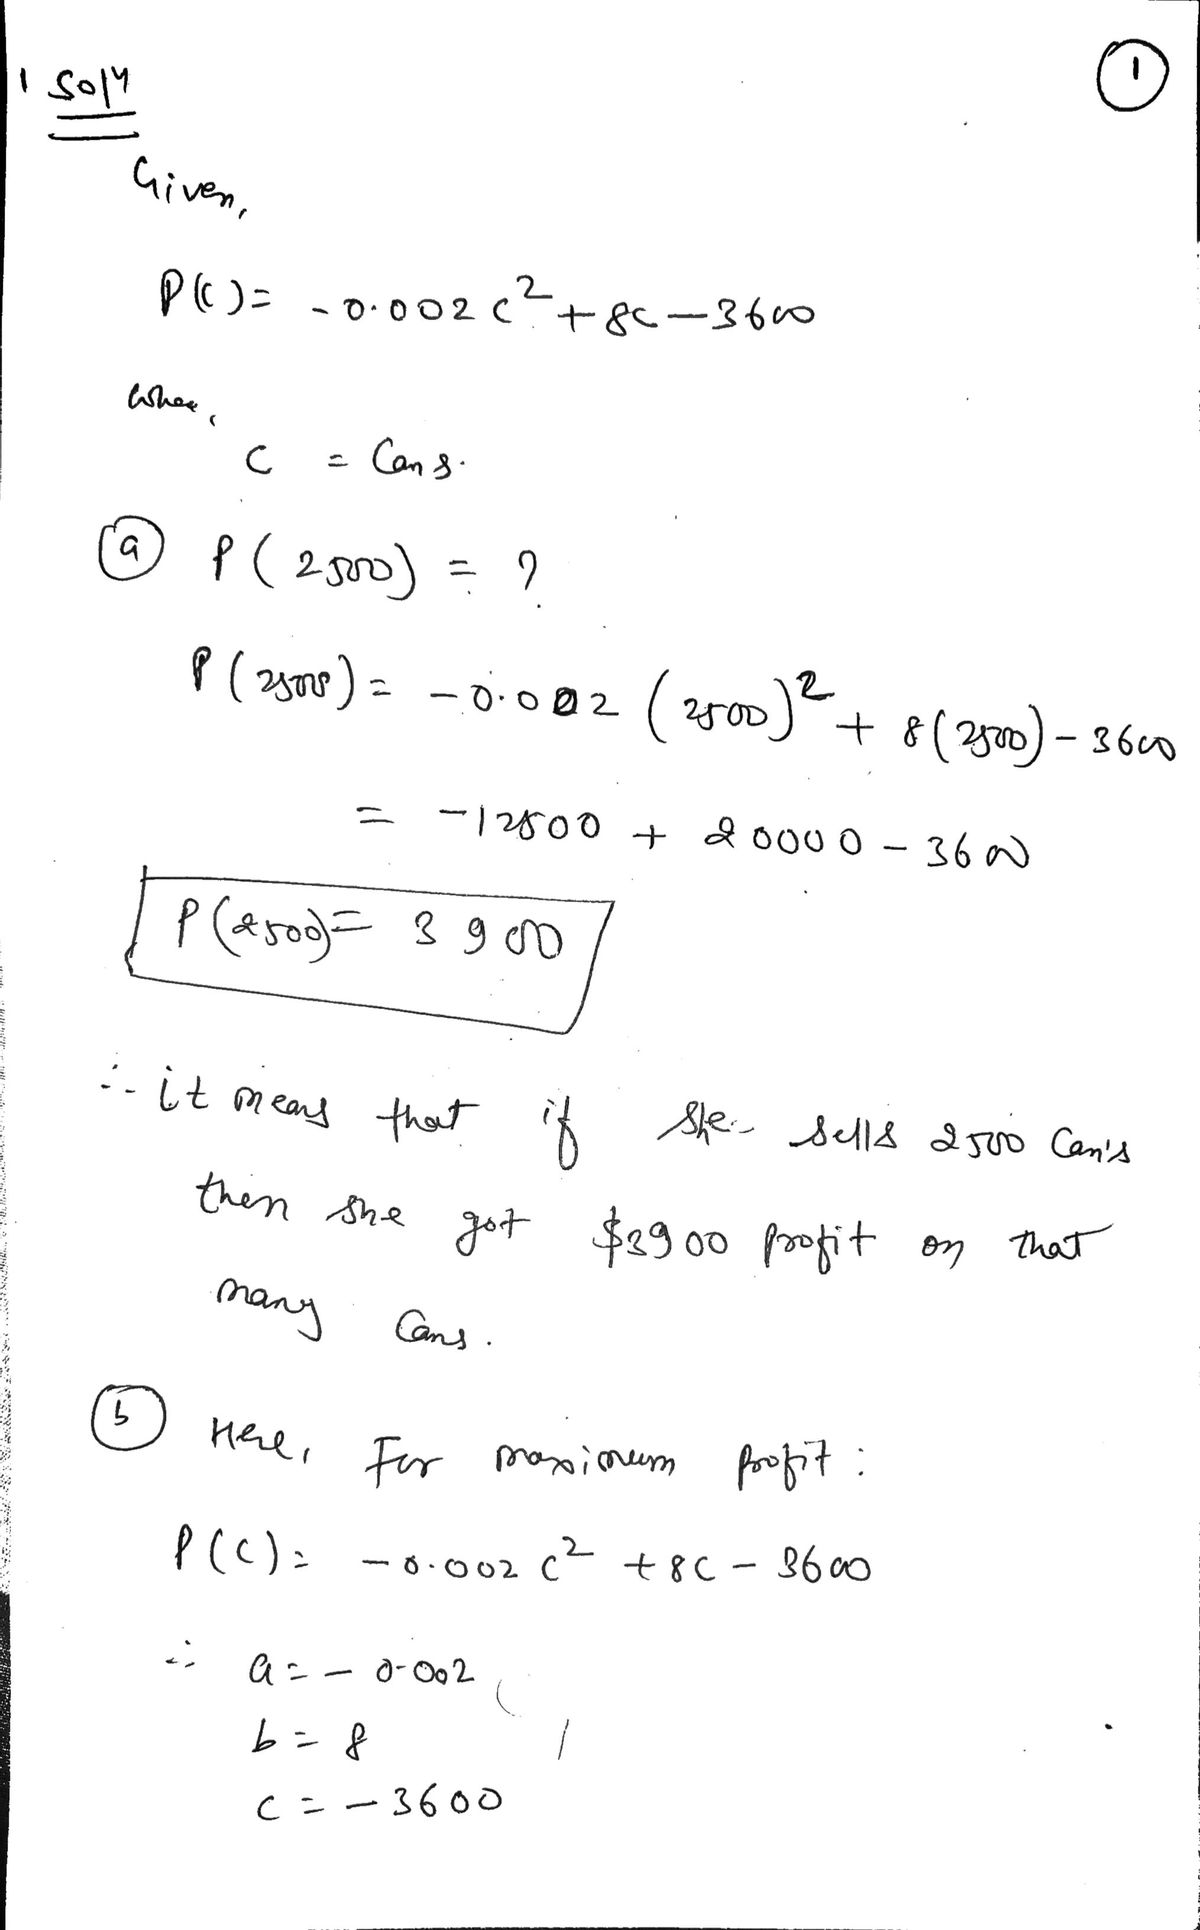 1 Solⁿ
①
Given,
P(c) = -0.002c² + 8c - 3600
where,
c = Cans.
ⓐ P(2500) = ?
P(2500) = -0.002 (2500)² + 8(2500) - 3600
= -12500 + 20000 - 3600
P(2500) = 3900
∴ it means that if she sells 2500 Can's
then she got $3900 profit on that
many Cans.
ⓑ Here, For maximum profit :
P(c) = -0.002c² + 8c - 3600
∴ a = -0.002
b = 8
c = -3600